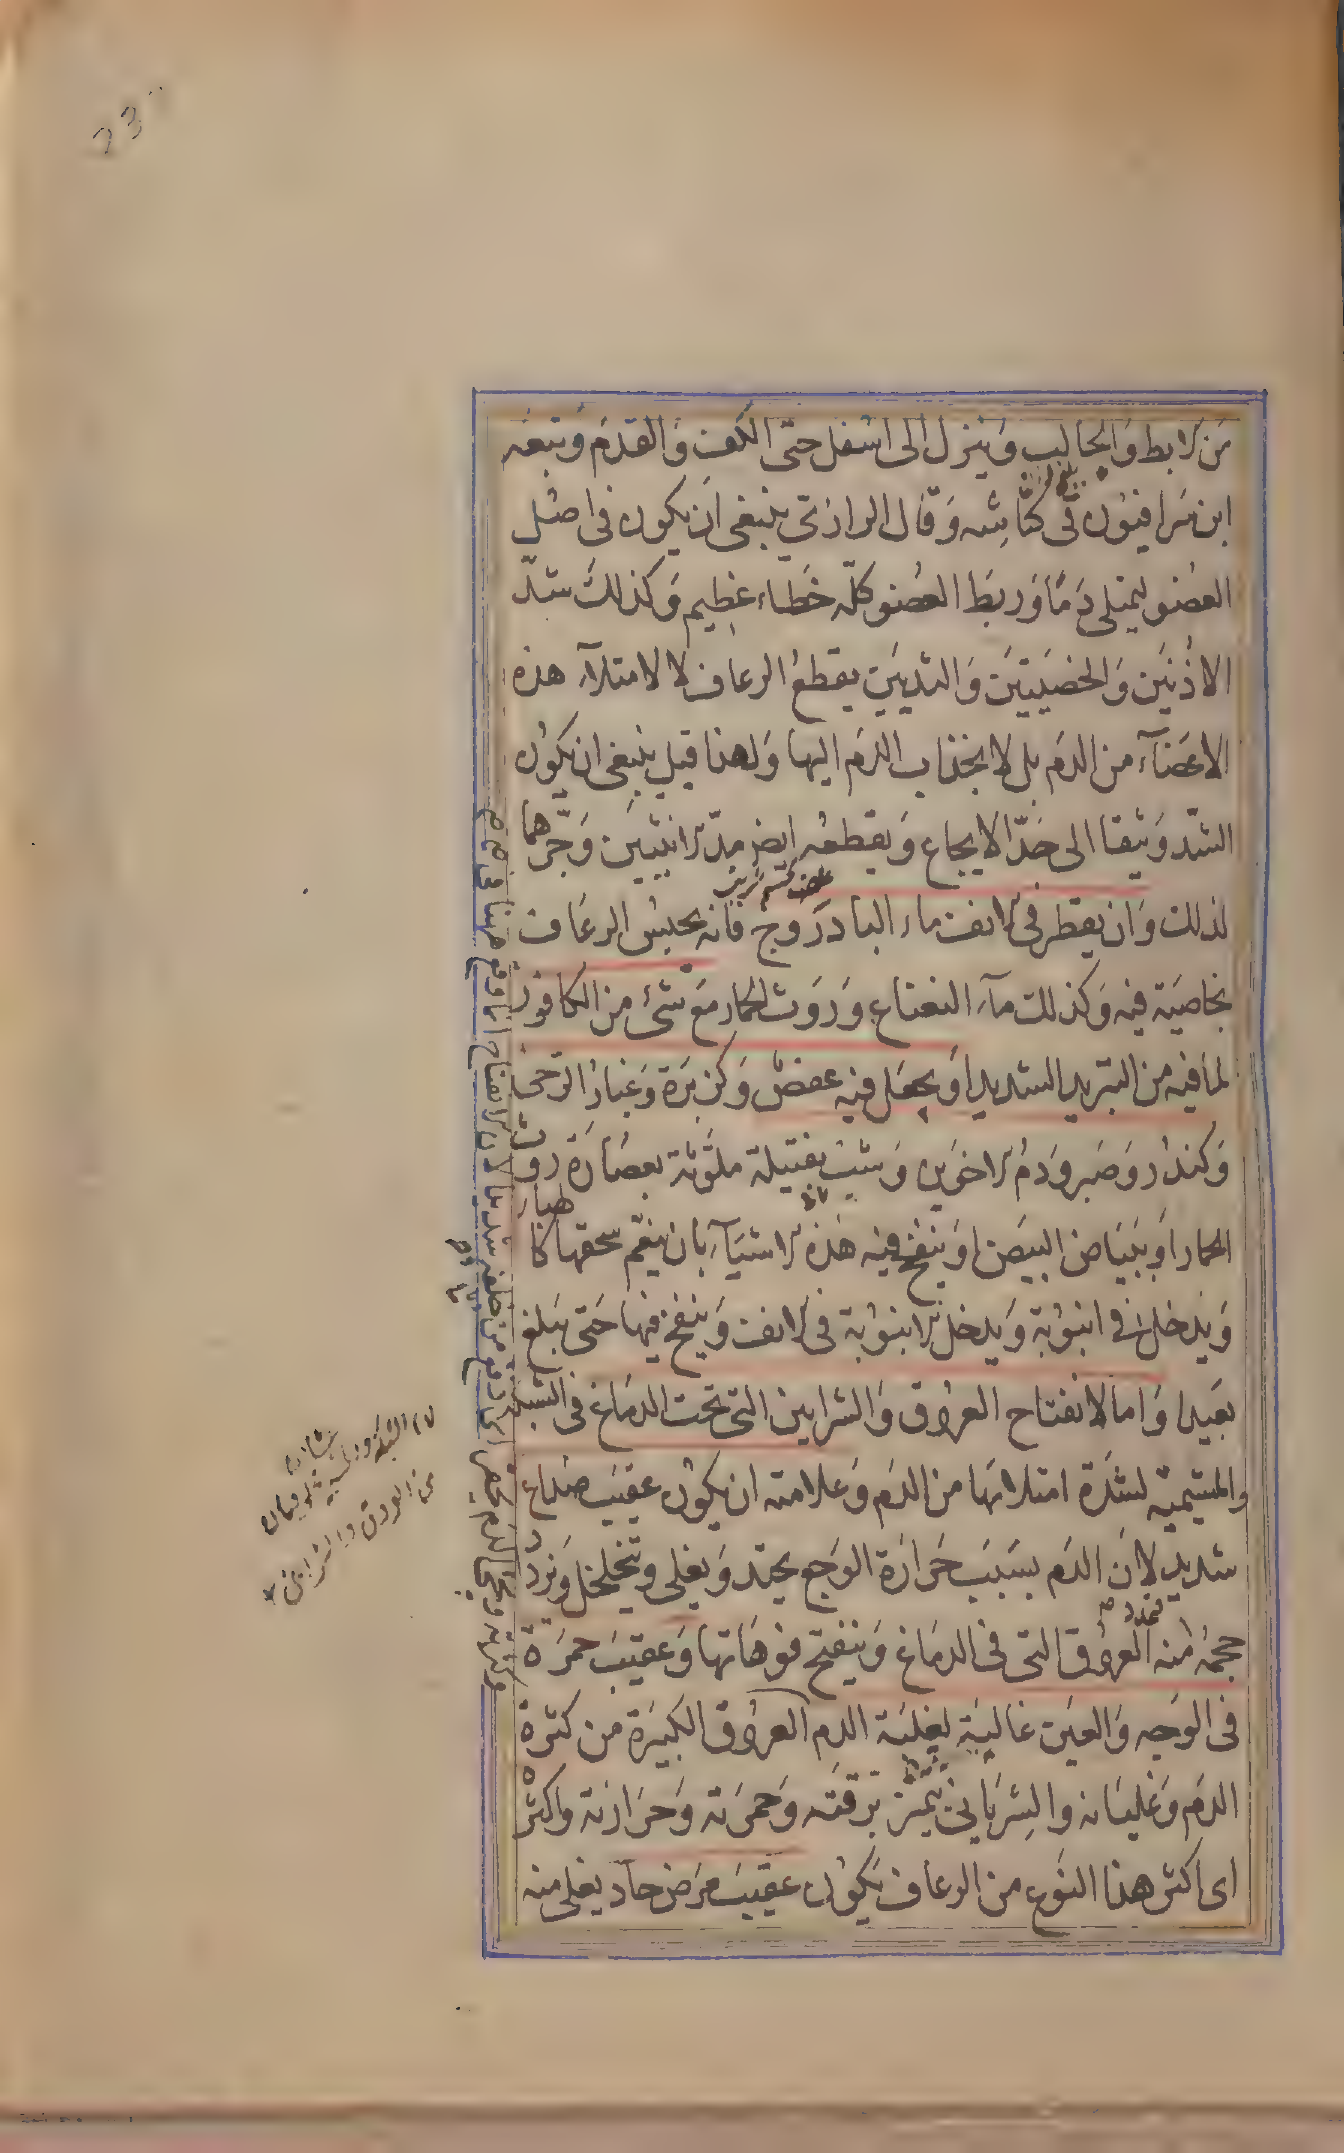 من الابط والحالب وينزل الى اسفل حتى الكف والقدم وتبعه
ابن سرافيون فى كناشه وقال الرازى ينبغى ان يكون فى اصل
العضو ليمتلى دما وربط العضو كله خطاء عظيم وكذلك شد
الاذنين والخصيتين والثديين يقطع الرعاف لا لامتلآء هذه
الاعضآء من الدم بل لانجذاب الدم اليها ولهذا قيل ينبغى ان يكون
الشد وثيقا الى حد الايجاع ويقطعه ايض مد الانثيين وجرهما
لذلك وان يقطر فى الانف ماء البادروج فانه يحبس الرعاف
بخاصية فيه وكذلك مآء النعناع وروث الحمار مع شئ من الكافور
لما فيه من التبريد الشديد او يجعل فيه عفص وكزبرة وغبار الرحى
وكندر وصبر ودم الاخوين وشب بفتيلة ملوثة بعصارة روث
الحمار او ببياض البيض او ينفخ فيه هذه الاشيآء بان ينعم سحقها كالهباء
ويدخل فى انبوبة ويدخل الانبوبة فى الانف وينفخ فيها حتى يبلغ
بعيدا واما لانفتاح العروق والشرايين التى تحت الدماغ فى الشبكة
والمشيمية لشدة امتلائها من الدم وعلامته ان يكون عقيب صداع
شديد لان الدم بسبب حرارة الوجع يحتد ويغلى ويتخلخل ويزداد
حجمه فتمدد منه العروق التى فى الدماغ وينفتح فوهاتها وعقيب حمرة
فى الوجه والعين غالبة لغلبة الدم العروق الكبيرة من كثرة
الدم وغليانه والشريانى يتميز برقته وحمرته وحرارته واكثره
اى اكثر هذا النوع من الرعاف يكون عقيب مرض حاد يغلى منه
من العروق والشرايين
23